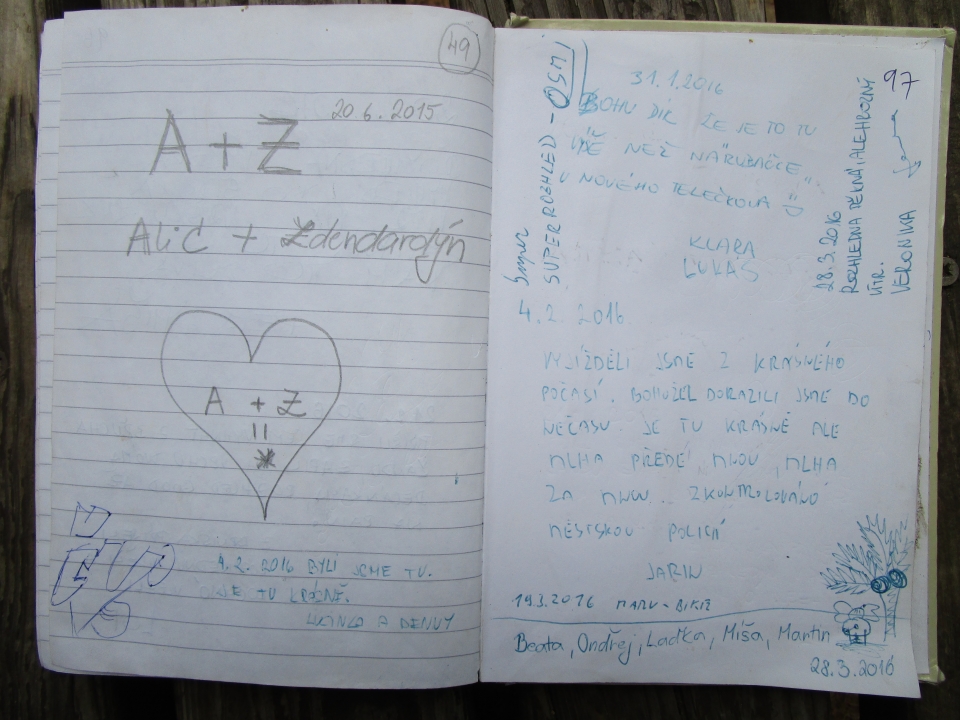 49
20.6.2015
A + Z
Alič + Zdendarotýn
A + Z
=
4.2. 2016 BYLI JSME TU.
TU KRÁSNĚ.
LUCINKA A DENNY
31.1.2016
BOHU DÍK ŽE JE TO TU
VÝŠE NEŽ NAŘUBAČCE
U NOVÉHO TELEČKOVA
KLARA
LUKÁŠ
Super
SUPER ROZHLED - OSMI
97
28.3.2016
ROZHLEDNA PĚKNÁ, ALE HROZNÝ
VÍTR.
VERONIKA
4.2. 2016
VYJÍŽDĚLI JSME Z KRÁSNÉHO
POČASÍ, BOHUŽEL DORAZILI JSME DO
NEČASU. JE TU KRÁSNĚ ALE
MLHA PŘEDE MNOU, MLHA
ZA MNOU. ZKONTROLOVÁNO
MĚSTSKOU POLICIÍ
JARIN
19.3.2016
Beata, Ondřej, Laďka, Míša, Martin
28.3.2016